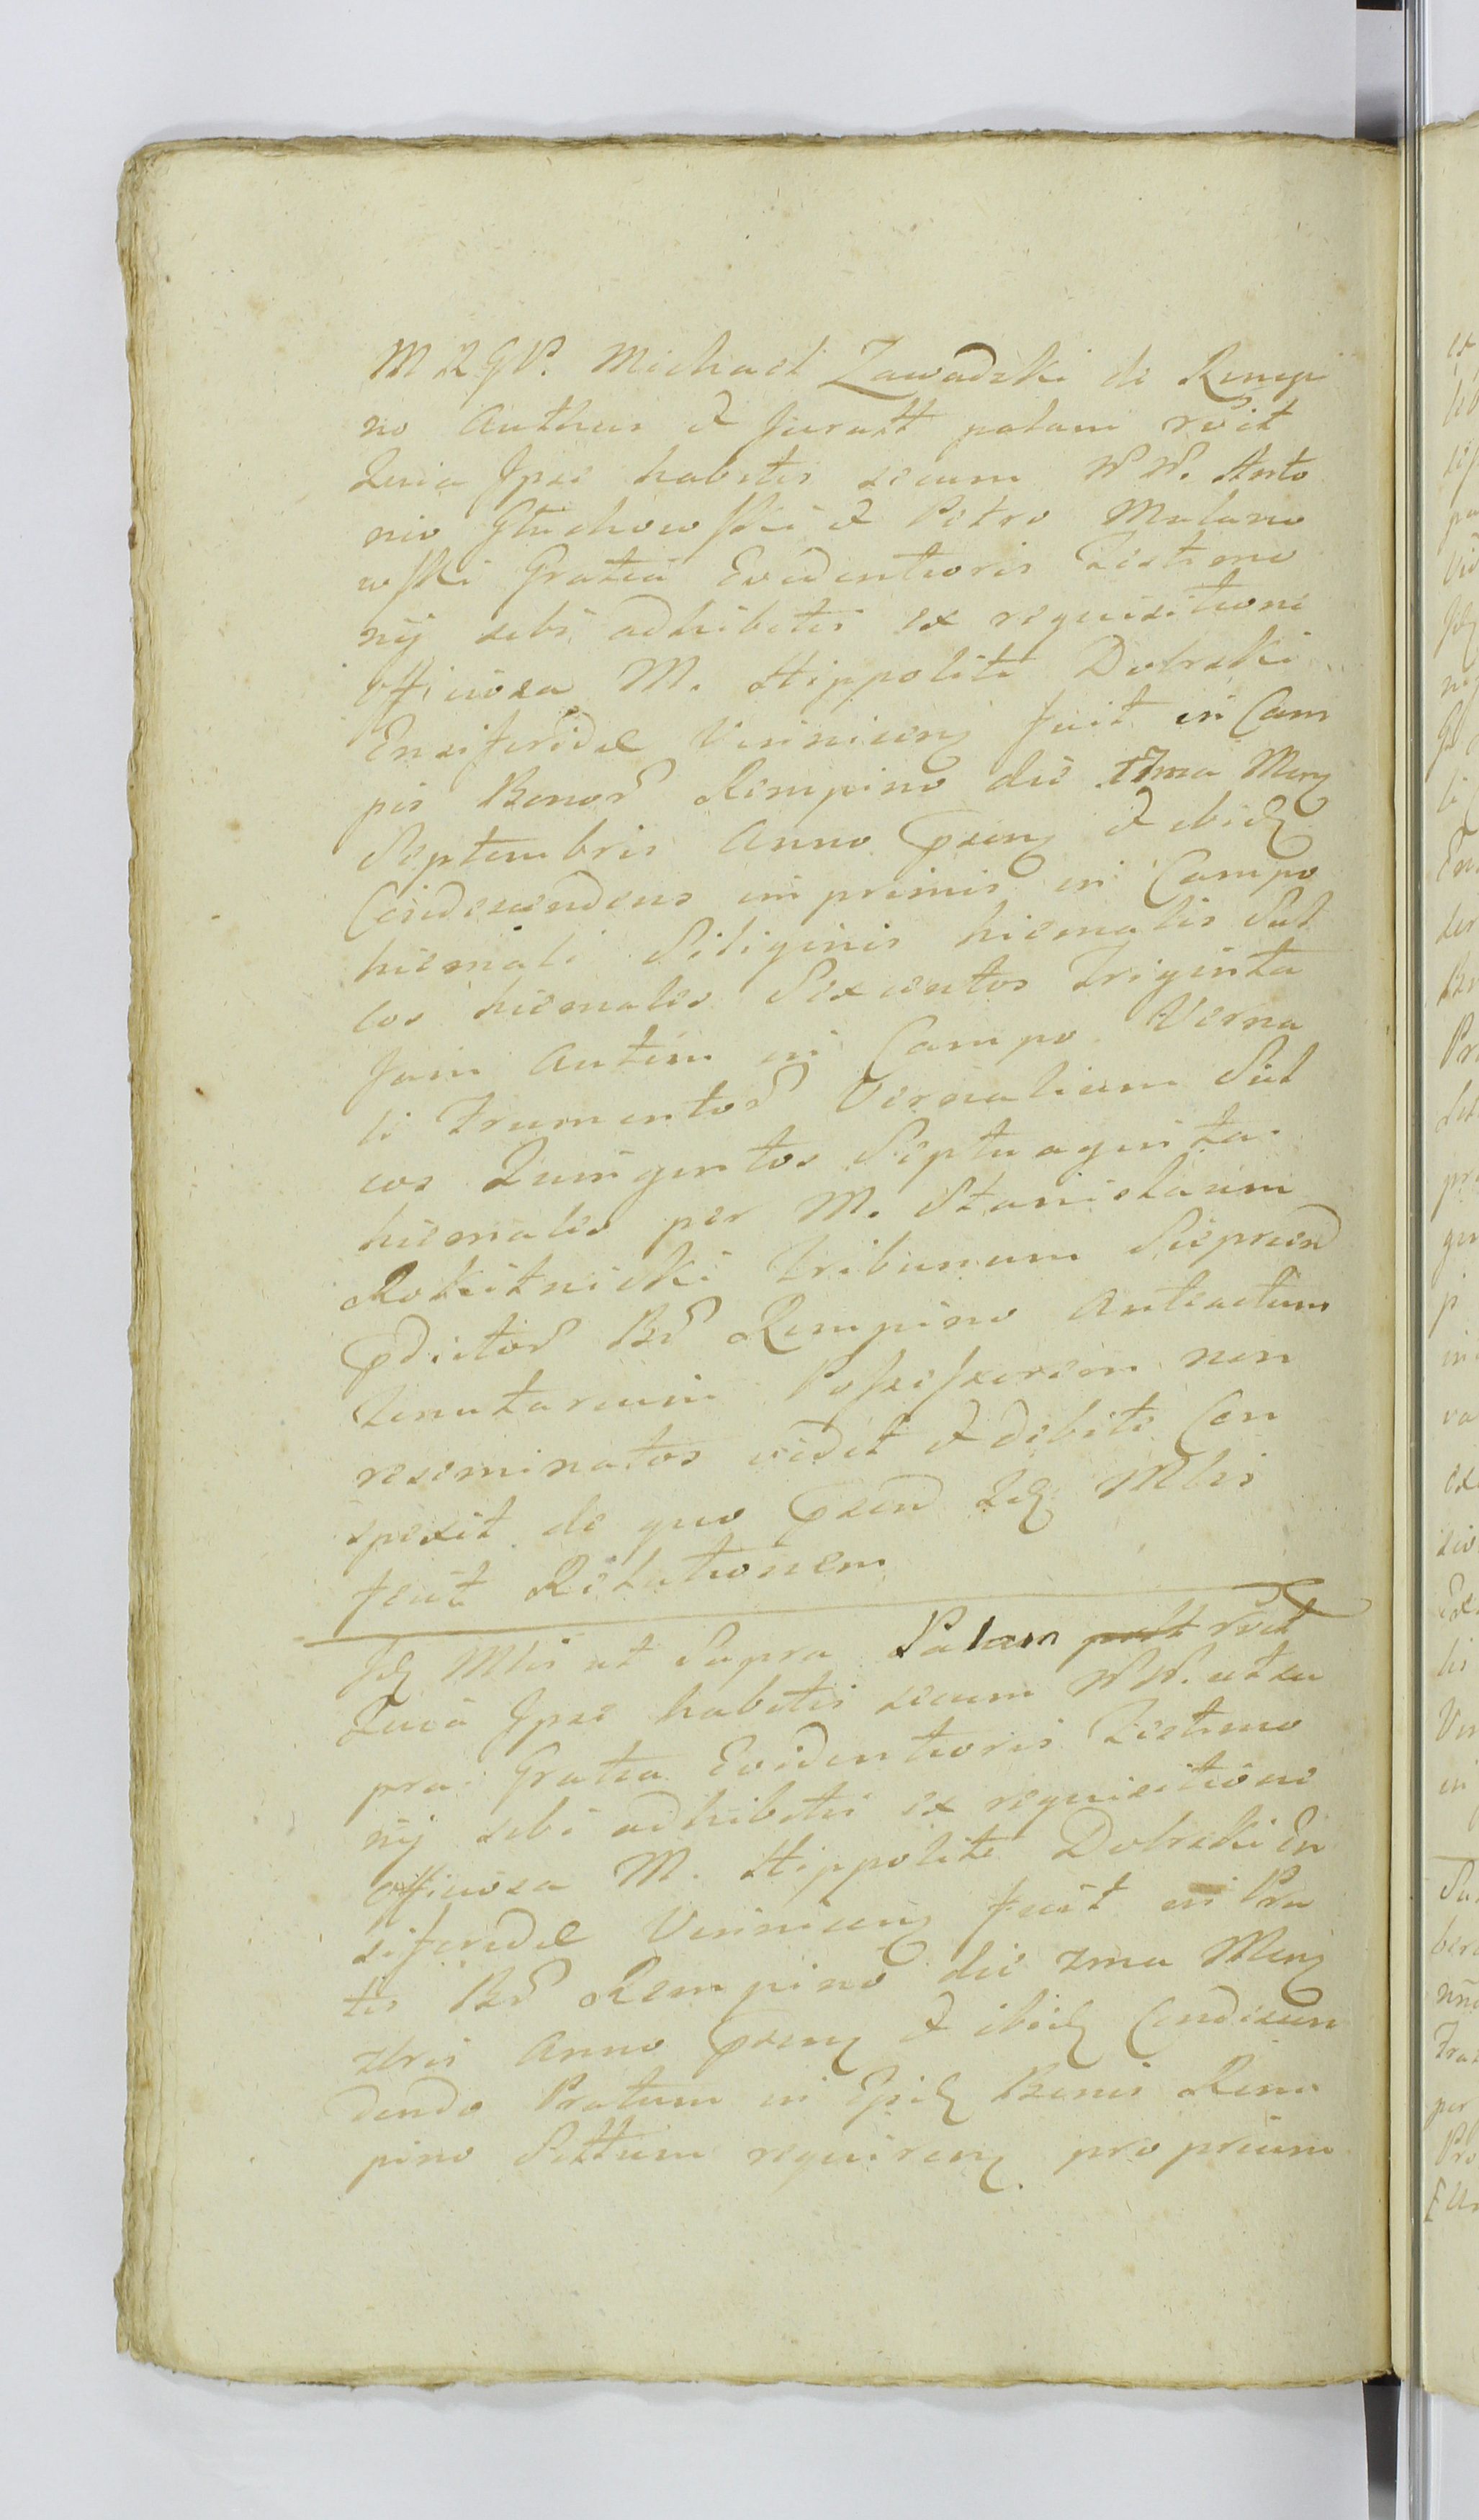 M R G V. Michael Zawadzki de Remp
no Authus & Juratt palam rcit
Quia Ipse habitis secum NN. Anto
nio Głuchowski & Petro Malano
wski Gratia Evidentioris Testimo
nij sibi adhibitis ex requisitione
officiosa M. Hippoliti Dobrski
Ensiferidæ Viznicen fuit in Cam
pis Bonor Rempino die 17ma Men
Septembris Anno præsen & ibid
Condescendens imprimis in Campo
hiemali Siliginis hiemalis Sul
cos hiemales Sexcentos Triginta
Jam Autem in Campo Verna
li Frumentor Vernalium Sul
cos Quingentos Septuaginta
hiemales per M. Stanislaum
Rokitnicki Tribunum Sieprcen
prædictor Br Rempino Anteactum
Tenutarium Possessorem non
reseminatos vidit & debite Con
spexit de quo præsen Id Mlis
fecit Relationem
Id Mlis ut Supra Palam rcit
Quia Ipse habitis secum NN. ut su
pra Gratia Evidentioris Testimo
nij sibi adhibitis ex requisitione
officiosa M. Hippoliti Dobrski En
siferidæ Viznicen fuit in Pra
tis Br Rempino die 7ma Men
7bris Anno præsen & ibid Condescen
dendo Pratum in Iisd Bonis Rem
pino Sittum requiren proprium